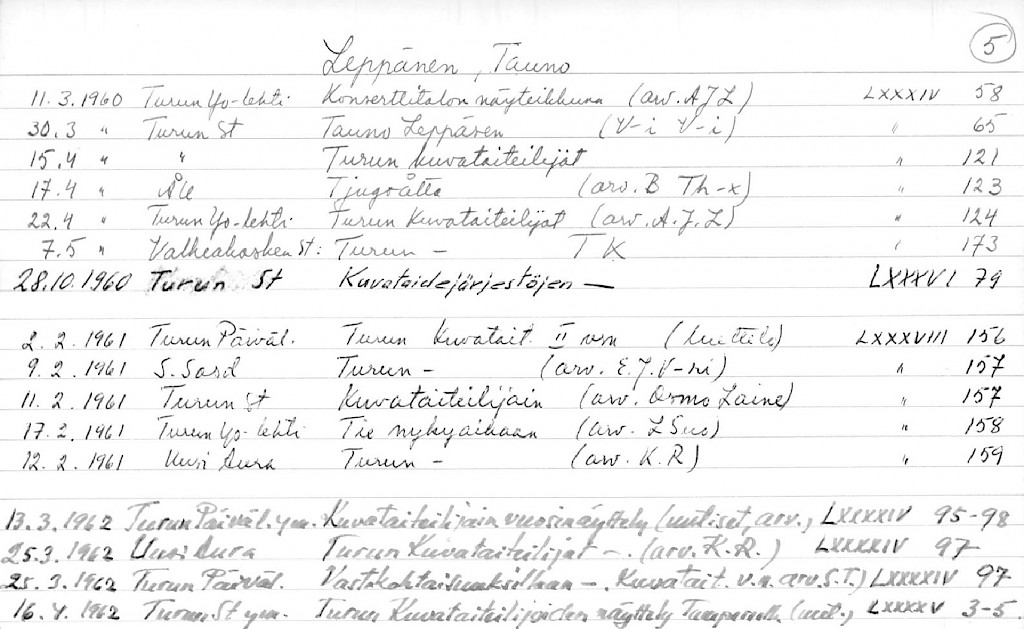 5
Leppänen, Tauno
11.3.1960 Turun Yo-lehti Konserttitalon näyteikkuna (arv. A J L) LXXXIV 58
30.3 " Turun St Tauno Leppänen (V-i V-i) " 65
15.4 " " Turun kuvataiteilijat " 121
17.4 " ÅU Tjugoåtta (arv. B Th-x) " 123
22.4 " Turun Yo-lehti Turun Kuvataiteilijat (arv. A.J.L) " 124
7.5 " Valkeakosken St: Turun - T K " 173
28.10.1960 Turun St Kuvataidejärjestöjen - LXXXVI 79
2.2.1961 Turun Päiväl. Turun Kuvatait. II (luettelo) LXXXVIII 156
9.2.1961 S. Sosd Turun - (arv. E.J.V-ni) " 157
11.2.1961 Turun St Kuvataiteilijain (arv. Osmo Laine) " 157
17.2.1961 Turun Yo-lehti Tie nykyaikaan (arv. L Suo) " 158
12.2.1961 Uusi Aura Turun - (arv. K.R) " 159
13.3.1962 Turun Päiväl. ym. Kuvataiteilijain vuosinäyttely (uutiset, arv., LXXXXIV 95-98
25.3.1962 Uusi Aura Turun Kuvataiteilijat -. (arv. K.R.) LXXXXIV 97
25.3.1962 Turun Päiväl. - Kuvatait. v.n. arv. S.T.) LXXXXIV 97
16.4.1962 Turun St ym. Turun Kuvataiteilijoiden näyttely Tampereella (uut., LXXXXV 3-5.